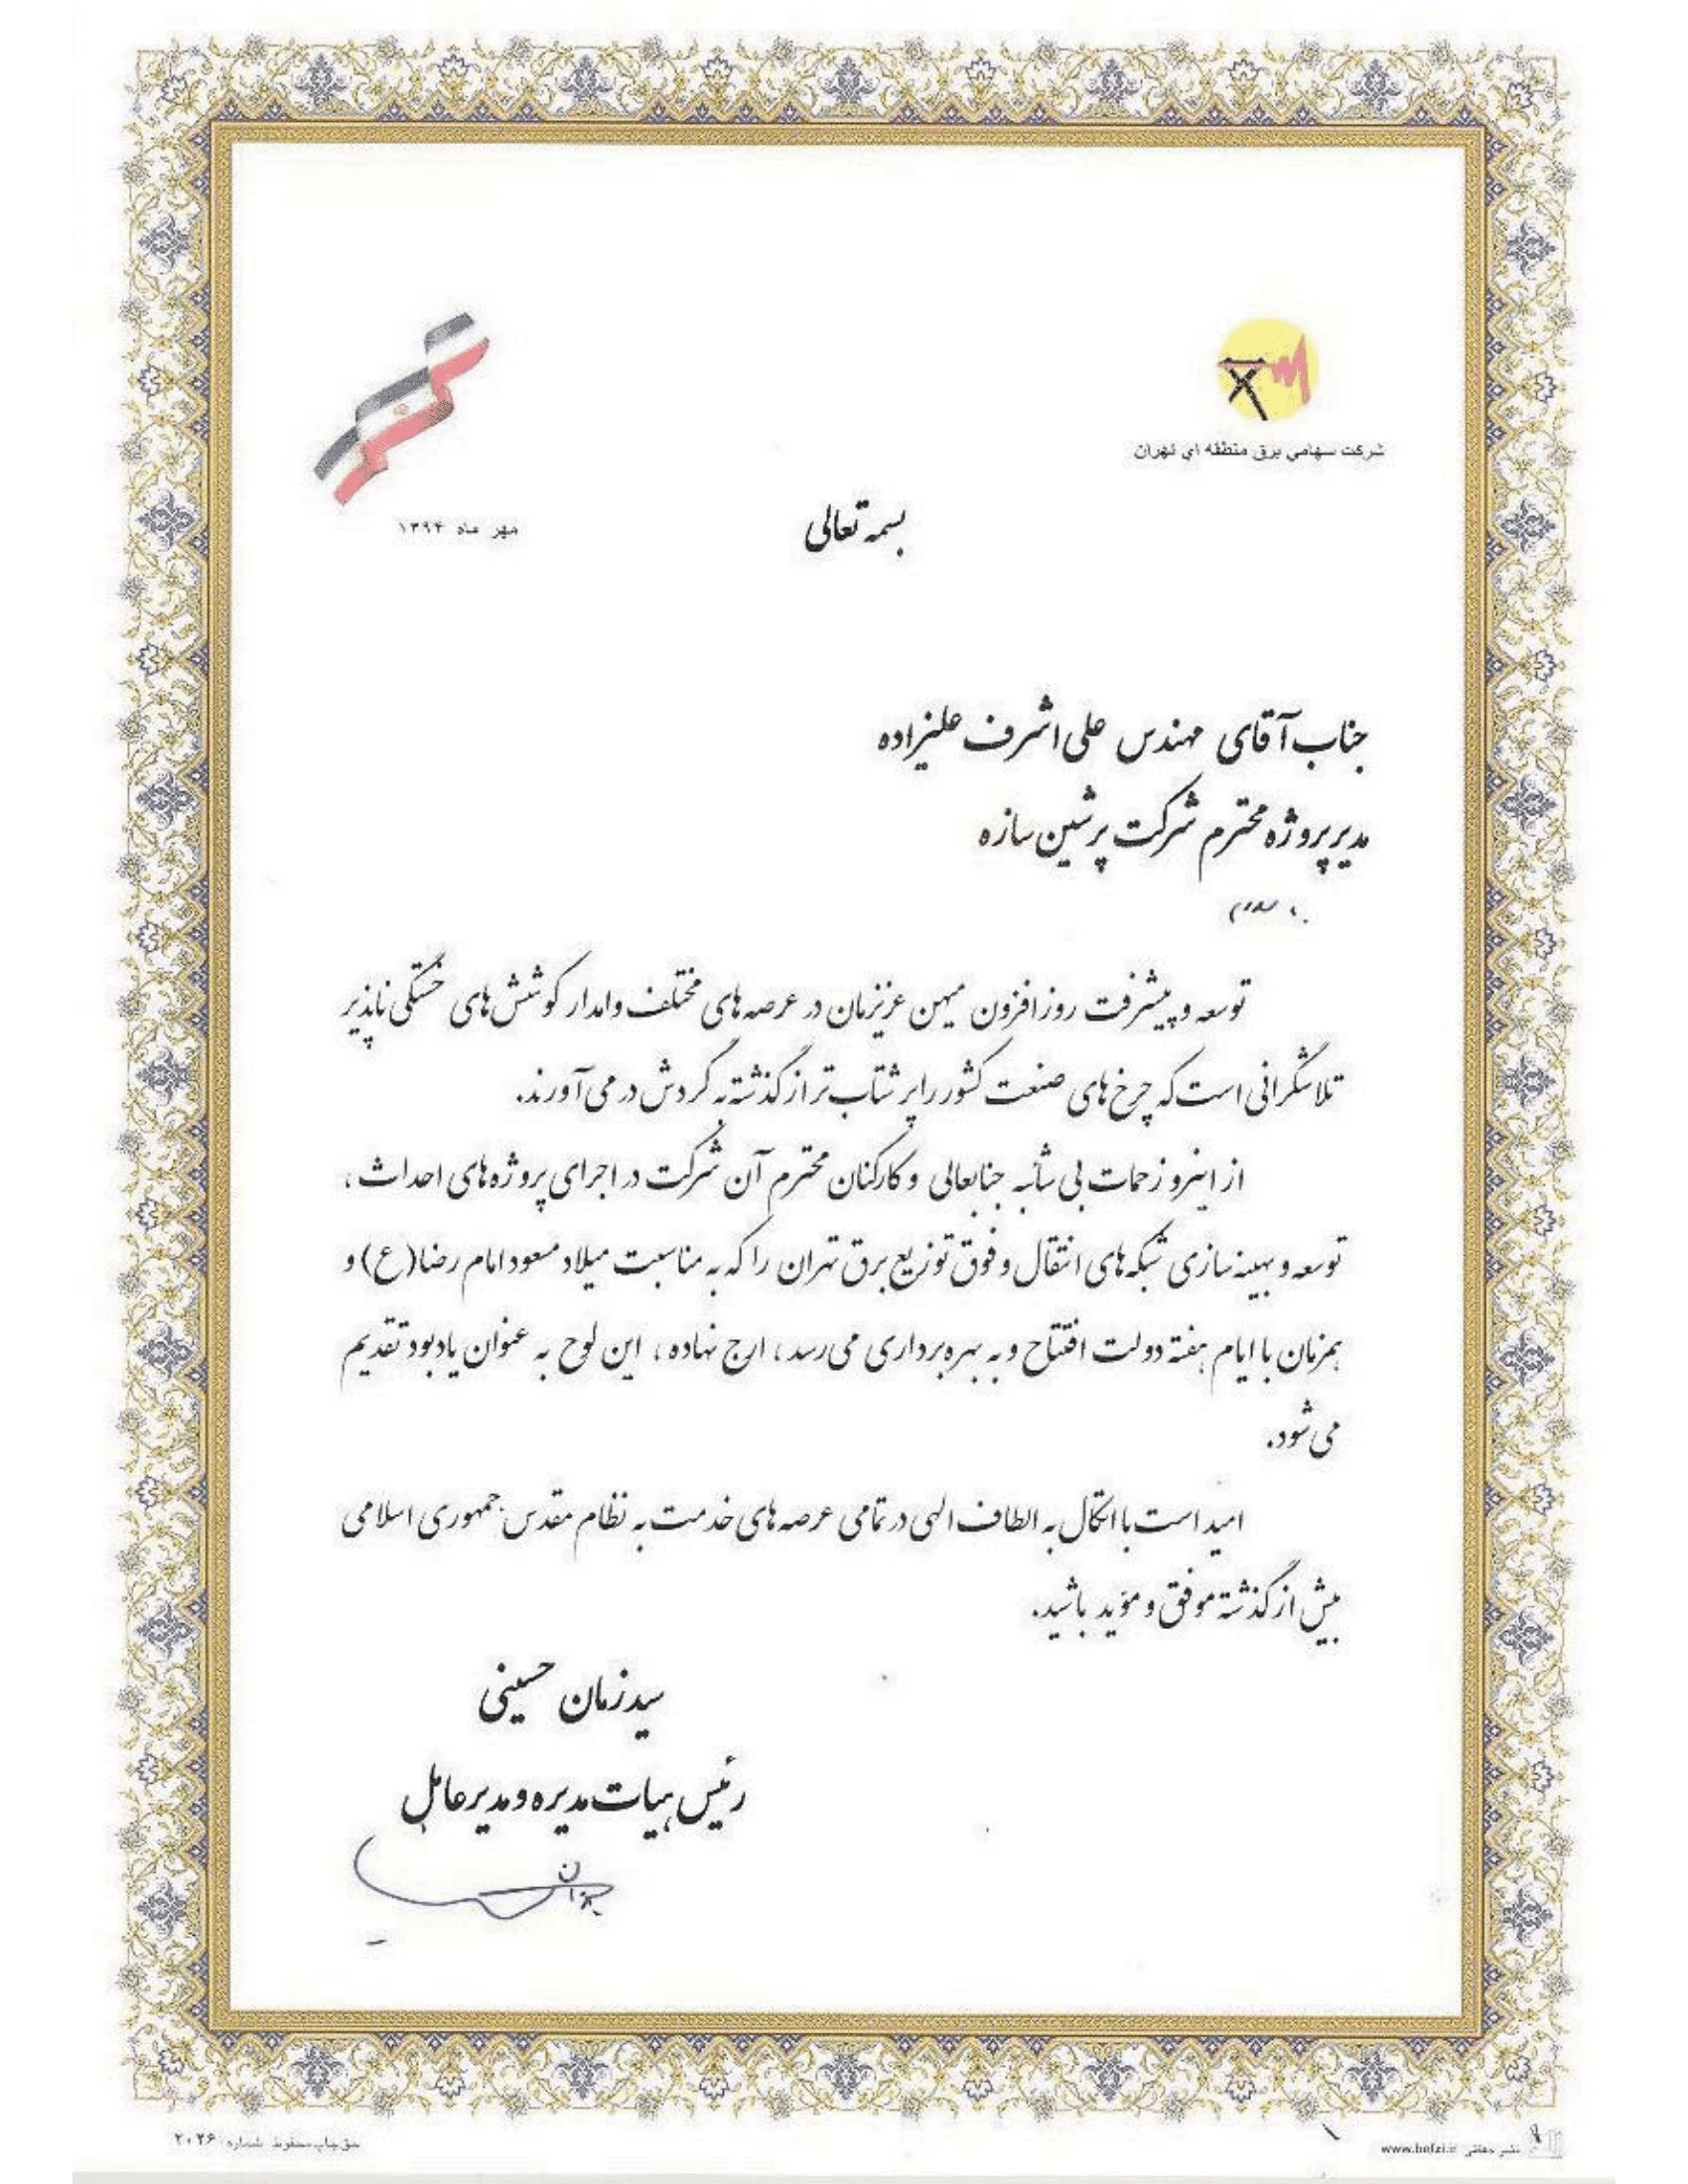 شرکت سهامی برق منطقه ای تهران
مهر ماه ۱۳۹۴
بسمه تعالی
جناب آقای مهندس علی اشرف علیزاده
مدیر پروژه محترم شرکت پرشین سازه
با سلام
توسعه و پیشرفت روز افزون میهن عزیزمان در عرصه های مختلف وامدار کوشش های خستگی ناپذیر
تلاشگرانی است که چرخ های صنعت کشور را پر شتاب تر از گذشته به گردش در می آورند.
از اینرو زحمات بی شائبه جنابعالی و کارکنان محترم آن شرکت در اجرای پروژه های احداث ،
توسعه و بهینه سازی شبکه های انتقال و فوق توزیع برق تهران را که به مناسبت میلاد مسعود امام رضا(ع) و
همزمان با ایام هفته دولت افتتاح و به بهره برداری می رسد ، ارج نهاده ، این لوح به عنوان یادبود تقدیم
می شود.
امید است با اتکال به الطاف الهی در تمامی عرصه های خدمت به نظام مقدس جمهوری اسلامی
بیش از گذشته موفق و مؤید باشید.
سید زمان حسینی
رئیس هیات مدیره و مدیر عامل
حق چاپ محفوظ شماره: ۲۰۲۶